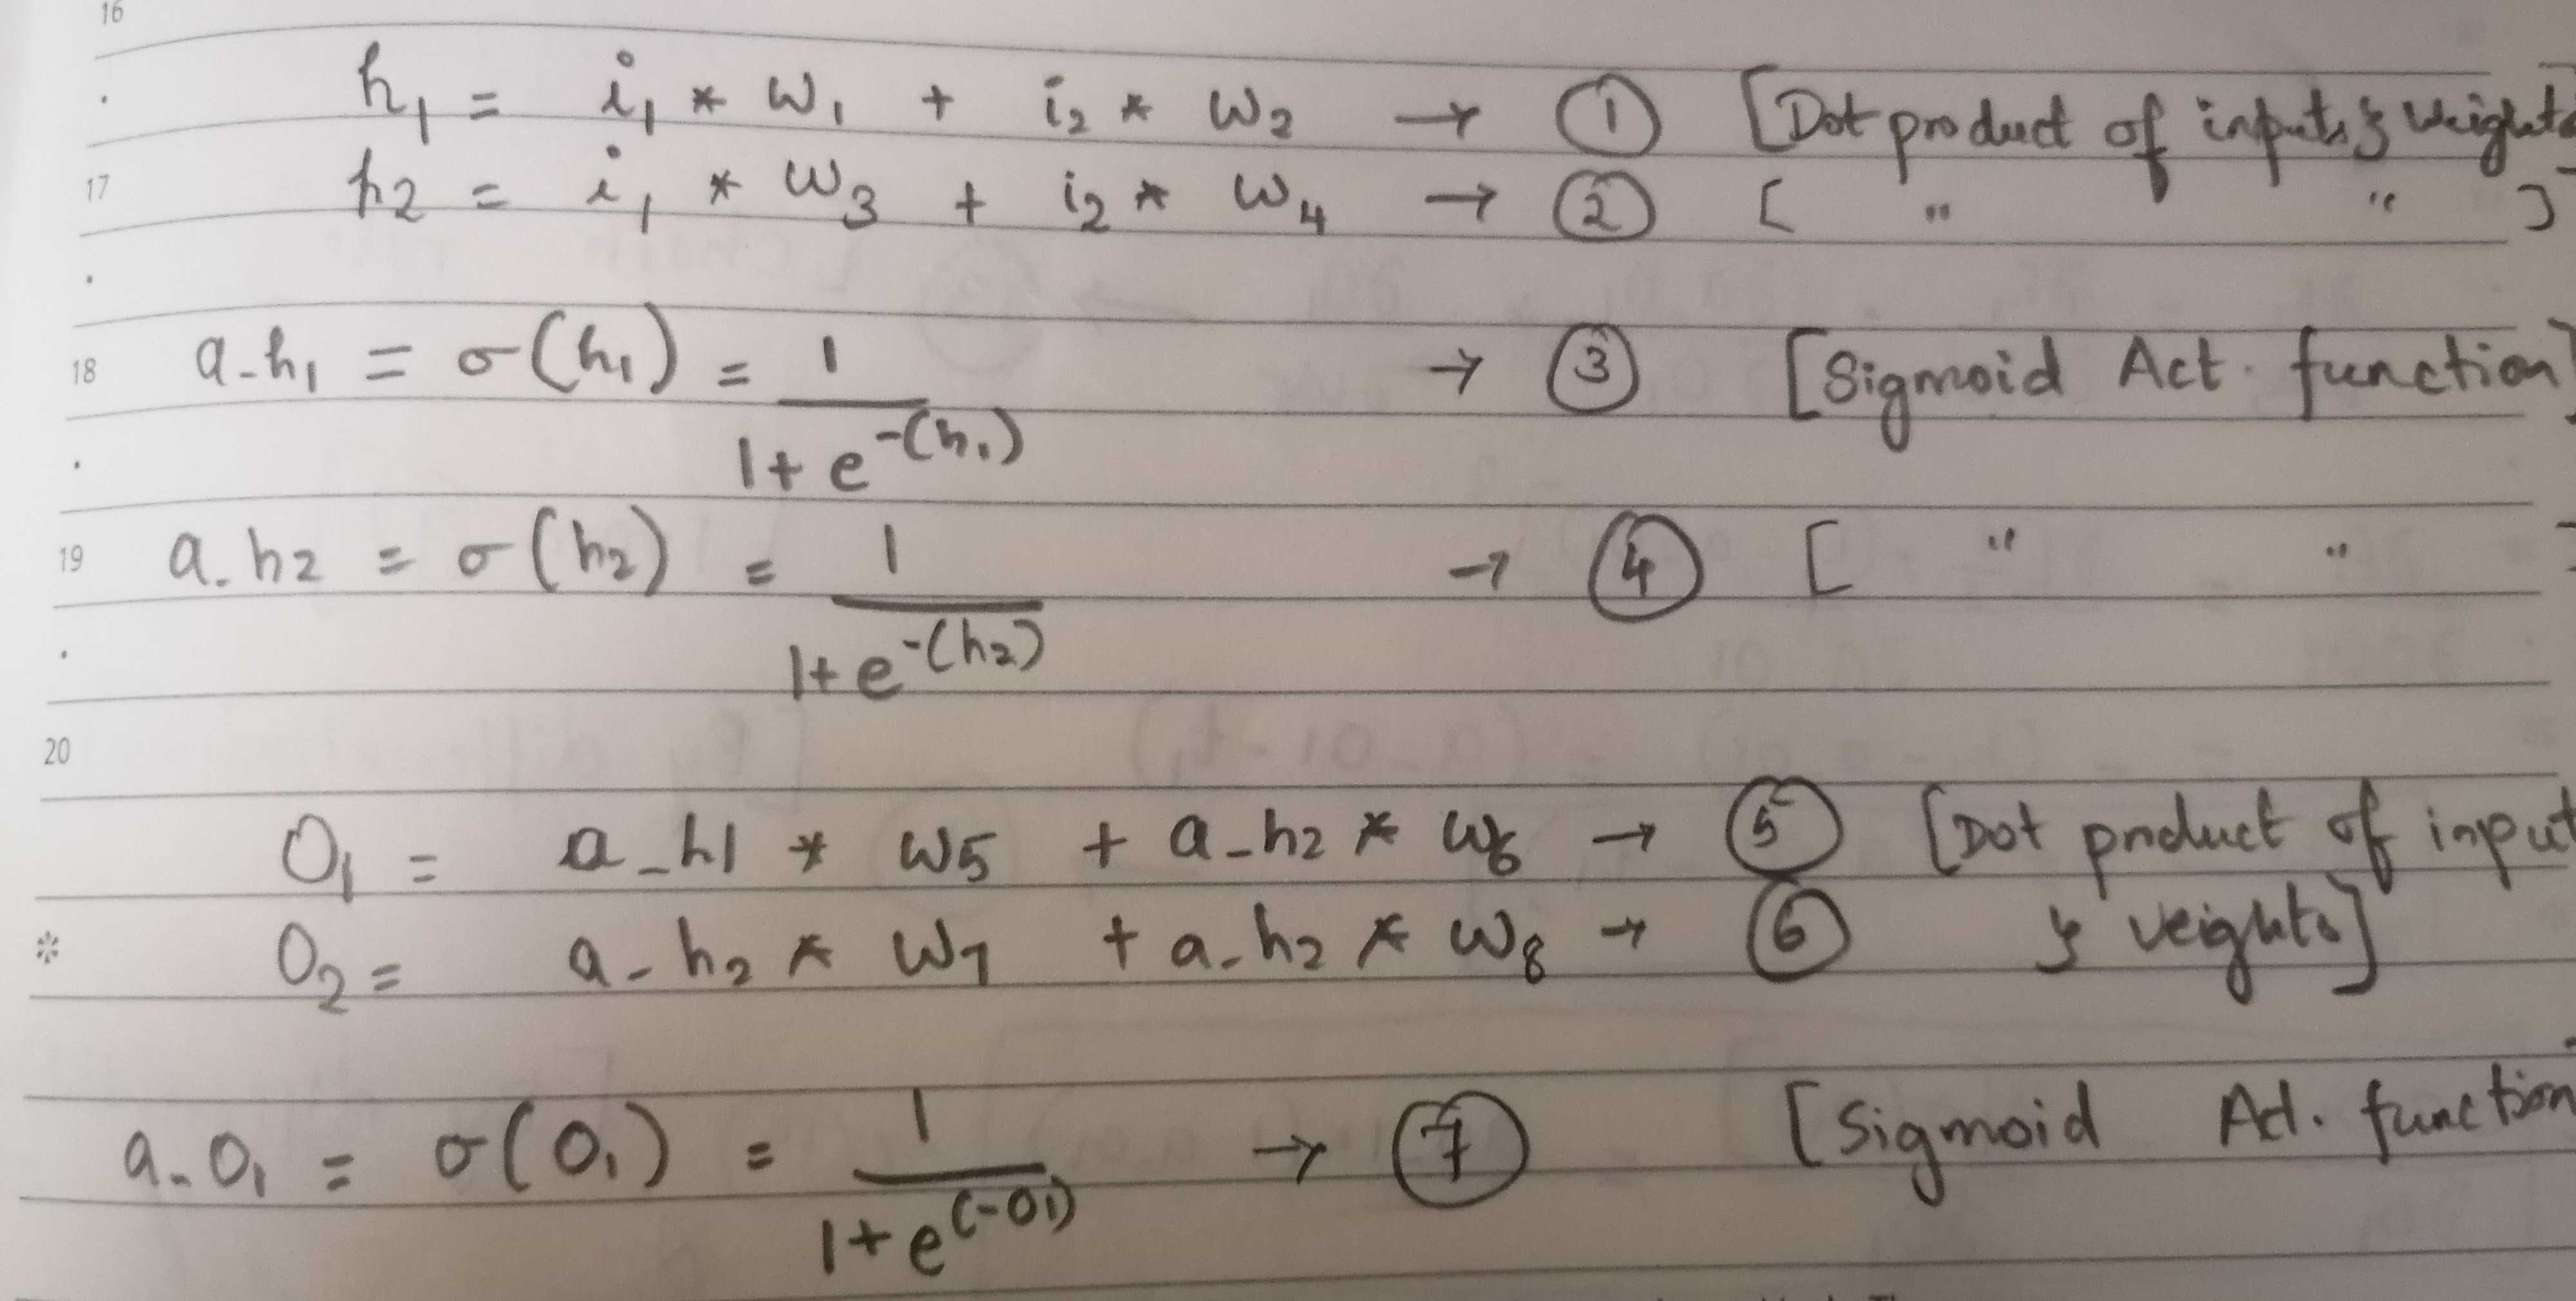 16
h₁ = i₁ * w₁ + i₂ * w₂ → ① [Dot product of inputs & weights]
17 h2 = i₁ * w₃ + i₂ * w₄ → ② [ " " ]
18 a_h₁ = σ(h₁) = 1 → ③ [Sigmoid Act. function]
1 + e^-(h₁)
19 a_h₂ = σ(h₂) = 1 → ④ [ " " ]
1 + e^-(h₂)
20
O₁ = a_h1 * w5 + a_h2 * w6 → ⑤ [Dot product of input
* O₂ = a_h₂ * w7 + a_h₂ * w8 → ⑥ & weights]
a_O₁ = σ(O₁) = 1 → ⑦ [Sigmoid Act. function
1 + e^(-O1)